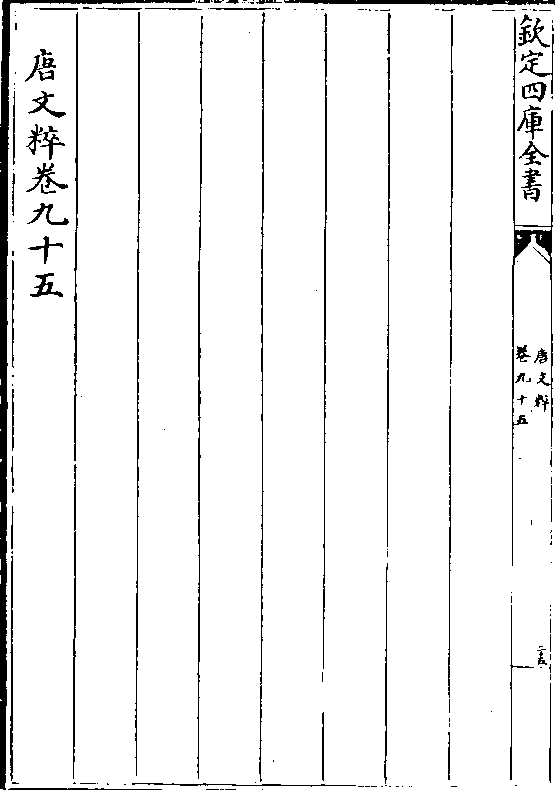 欽定四庫全書
唐文粹
卷九十五
唐文粹卷九十五